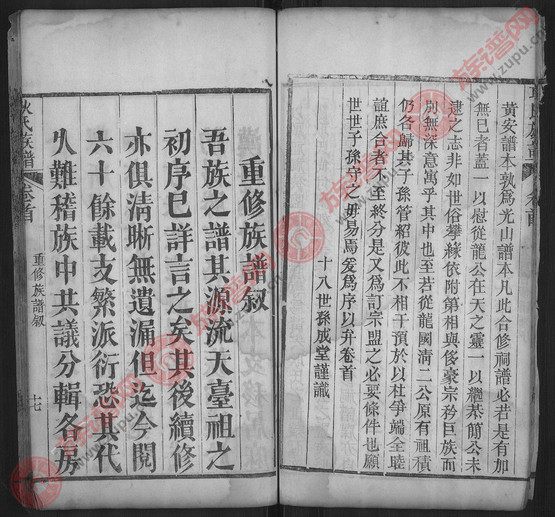 黃安譜本孰為光山譜本凡此合修祠譜必若是有加
無已者蓋一以慰從龍公在天之靈一以繼恭簡公未
逮之志非如世俗攀緣依附第相與侈豪宗矜巨族而
別無深意寓乎其中也至若從龍國清二公原有祖積
仍各歸其子孫管紹彼此不相干預於以杜爭端全睦
誼庶合者不至終分是又為訂宗盟之必要條件也願
世世子孫守之毋易焉爰為序以弁卷首
十八世孫成堂謹識
重修族譜敘
吾族之譜其源流天臺祖之
初序已詳言之矣其後續修
亦俱清晰無遺漏但迄今閱
六十餘載支繁派衍恐其代
久難稽族中共議分輯各房
氏族譜
卷首
重修族譜敘
十七
族谱网
www.zupu.cn